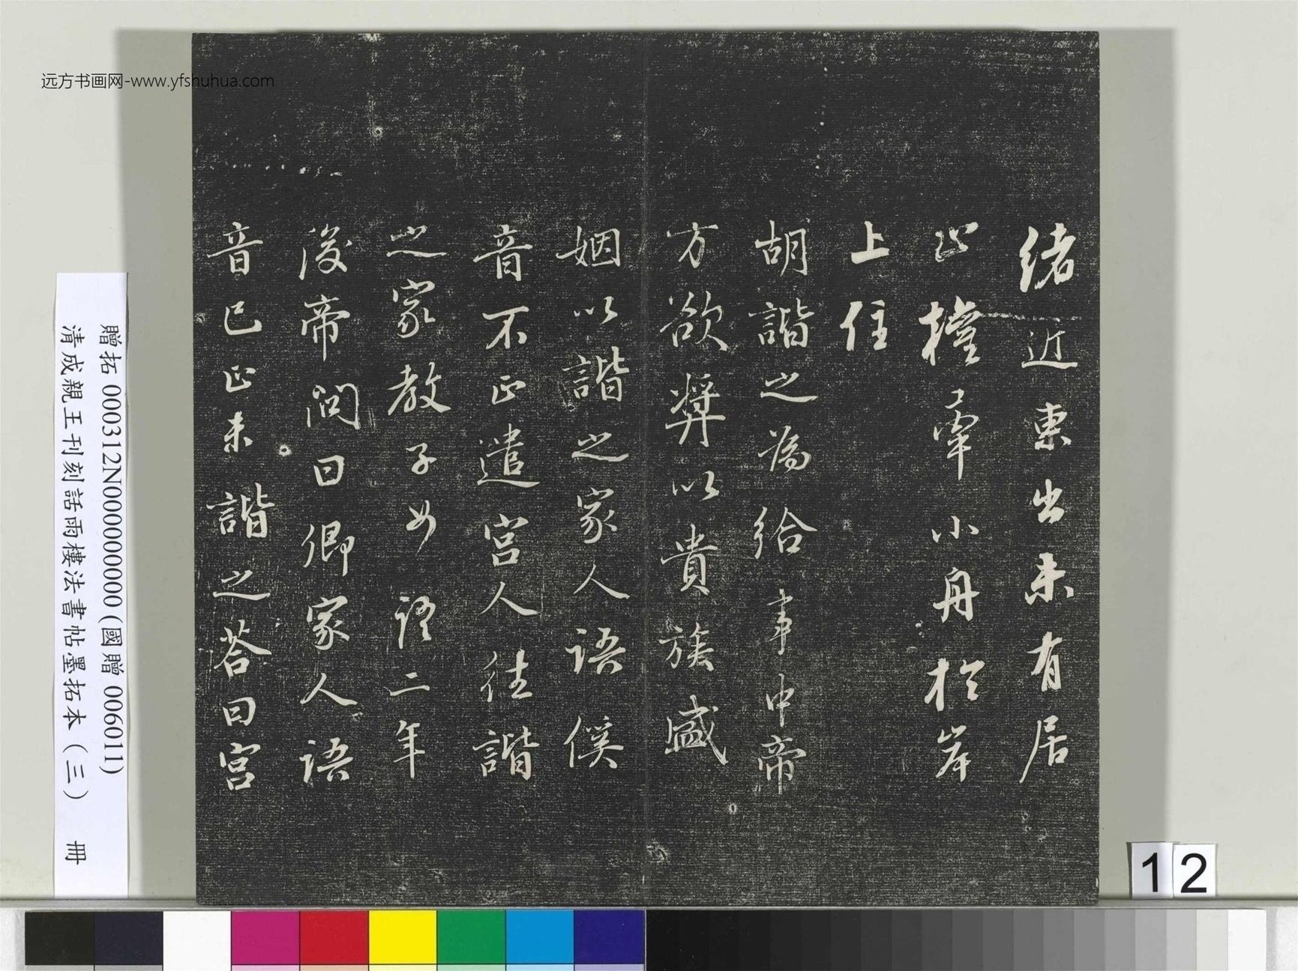 緒近東出未有居
止權牽小舟於岸
上住
胡諧之為給事中帝
方欲奬以貴族盛
姻以諧之家人語傒
音不正遣宮人往諧
之家教子女語二年
後帝問曰卿家人語
音已正未諧之答曰宮
远方书画网-www.yfshuhua.com
贈拓 000312N000000000(國贈 006011)
清成親王刊刻話雨樓法書帖墨拓本(三) 冊
12